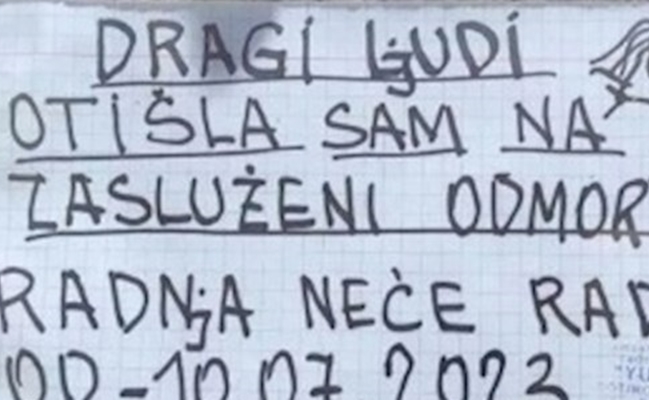 DRAGI LjUDI
OTIŠLA SAM NA
ZASLUŽENI ODMOR
RADNjA NEĆE RAD
DO-10 07 2023